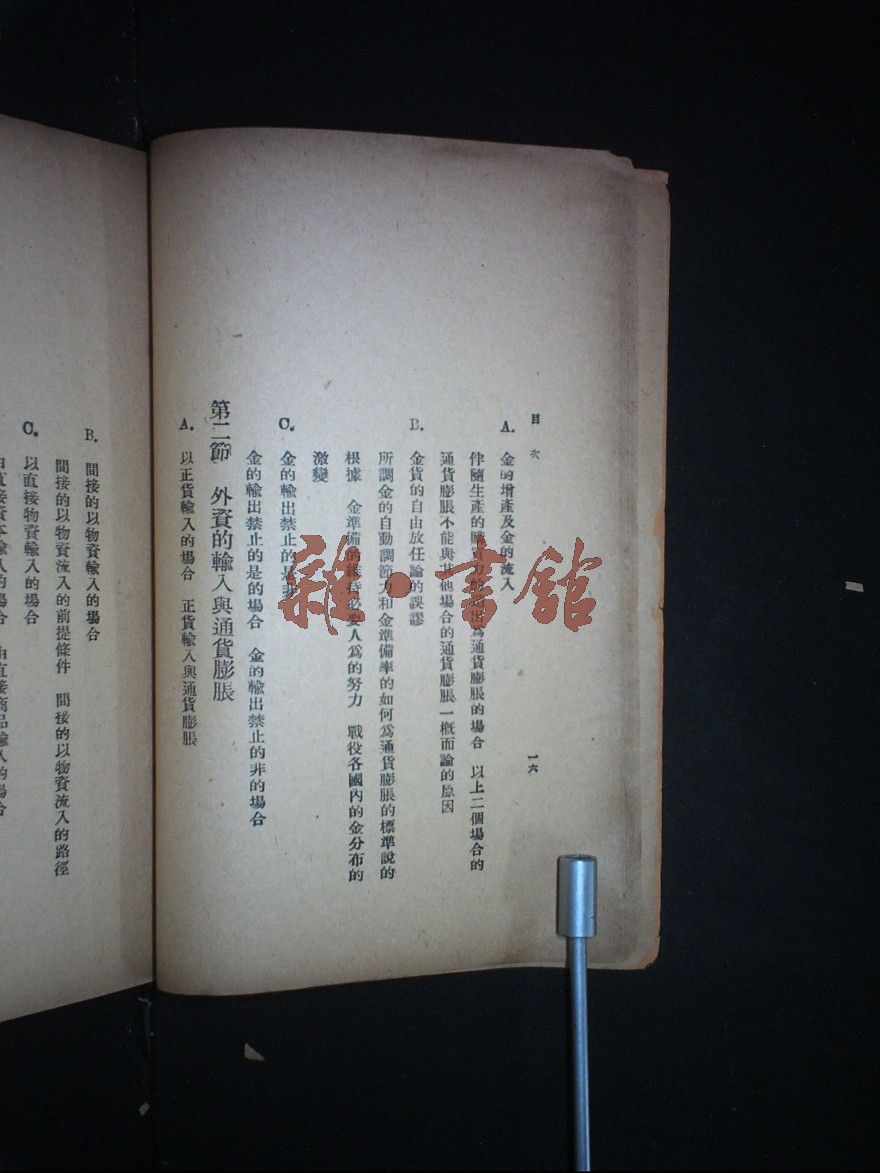 目次
一六
A. 金的增產及金的流入
伴隨生產的購買力的 出為通貨膨脹的場合 以上二個場合的
通貨膨脹不能與其他場合的通貨膨脹一概而論的原因
B. 金貨的自由放任論的誤謬
所謂金的自動調節力和金準備率的如何為通貨膨脹的標準說的
根據 金準備的維持必要人為的努力 戰役各國內的金分布的
激變
C. 金的輸出禁止的是非
金的輸出禁止的是的場合 金的輸出禁止的非的場合
第二節 外資的輸入與通貨膨脹
A. 以正貨輸入的場合 正貨輸入與通貨膨脹
B. 間接的以物資輸入的場合
間接的以物資流入的前提條件 間接的以物資流入的路徑
C. 以直接物資輸入的場合
由直接資本輸入的場合 由直接商品輸入的場合
雜·書館